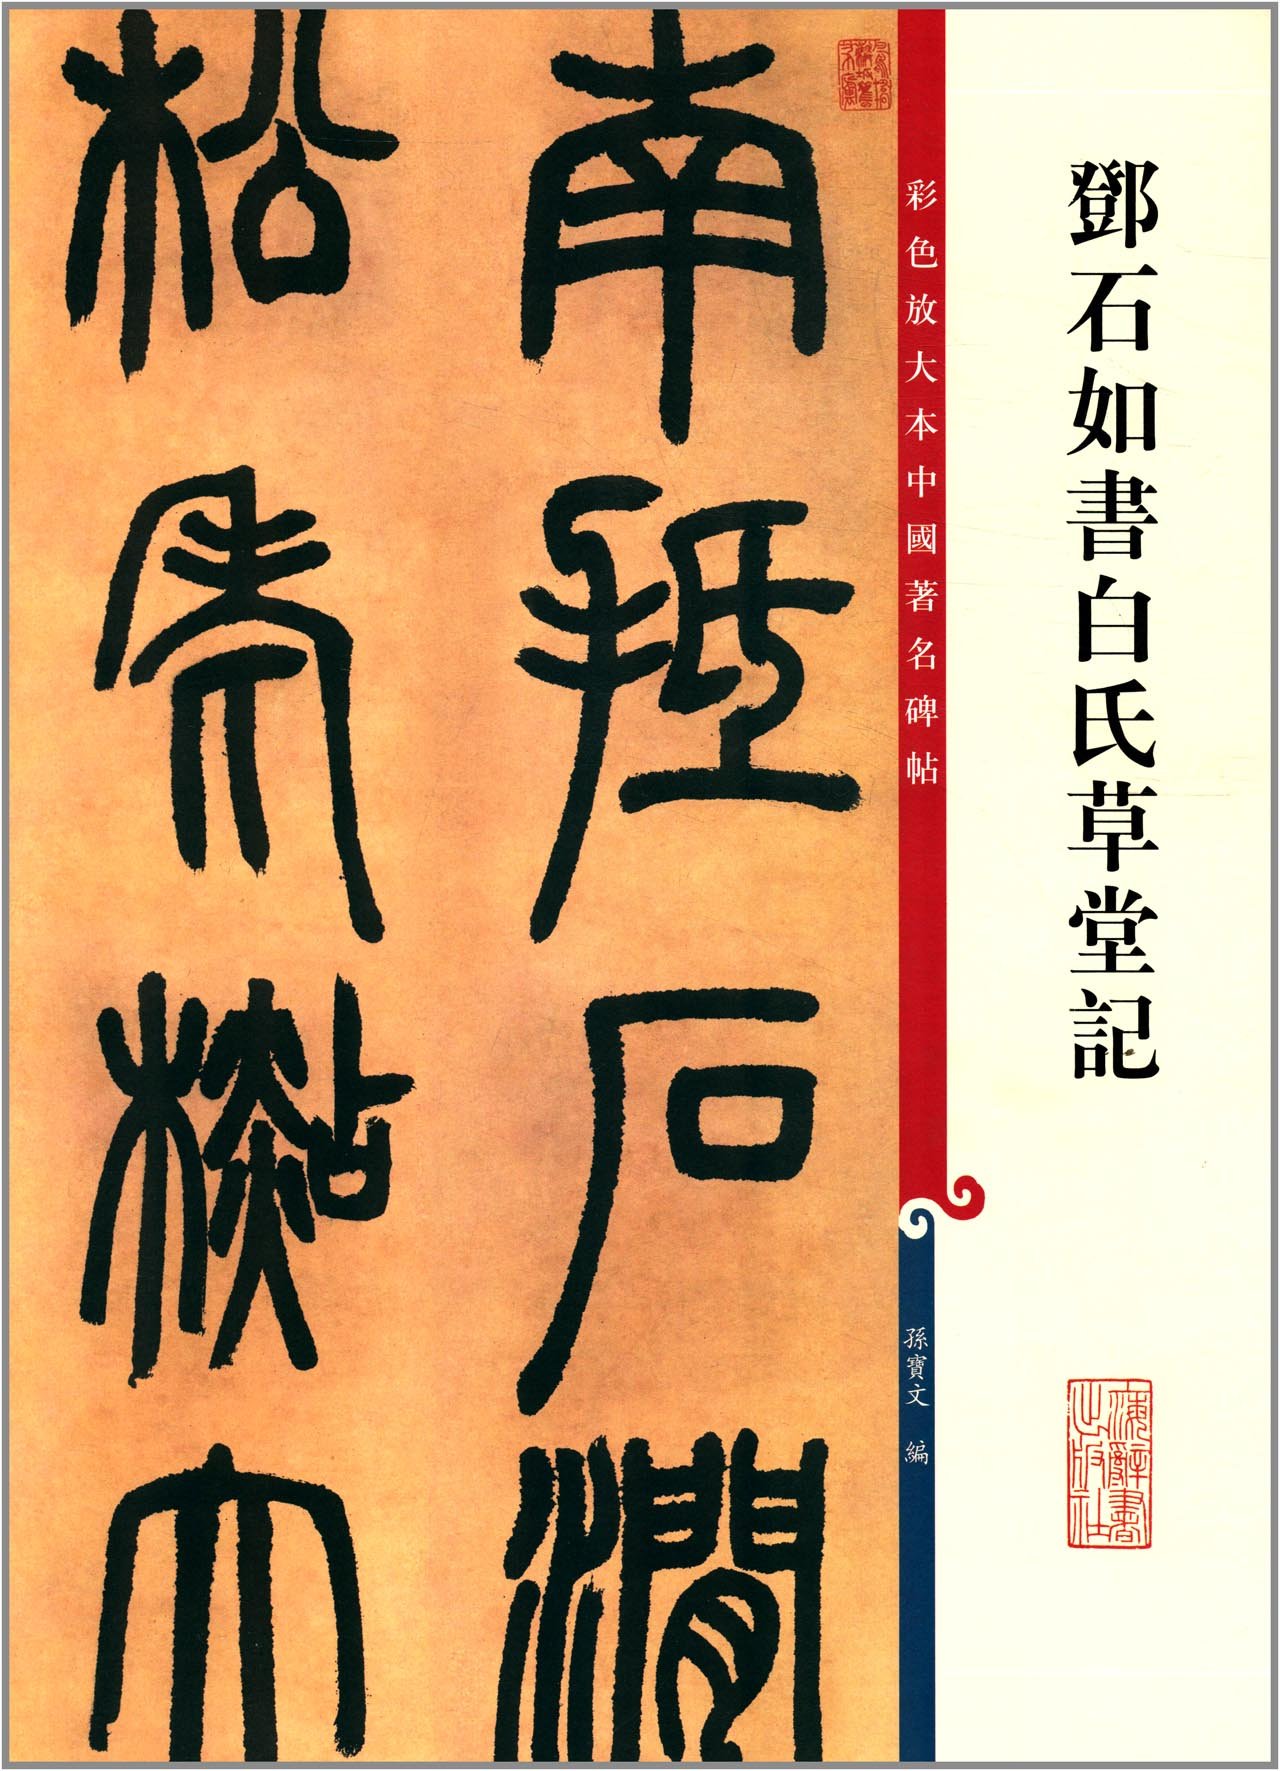 鄧石如書白氏草堂記
上海辭書出版社
彩色放大本中國著名碑帖
孫寶文 編
南抵石澗
松老檆大